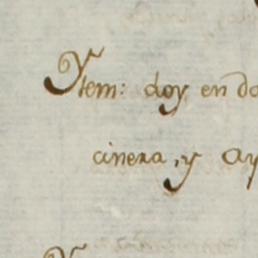 Ytem: doy en do
cinera, y ay